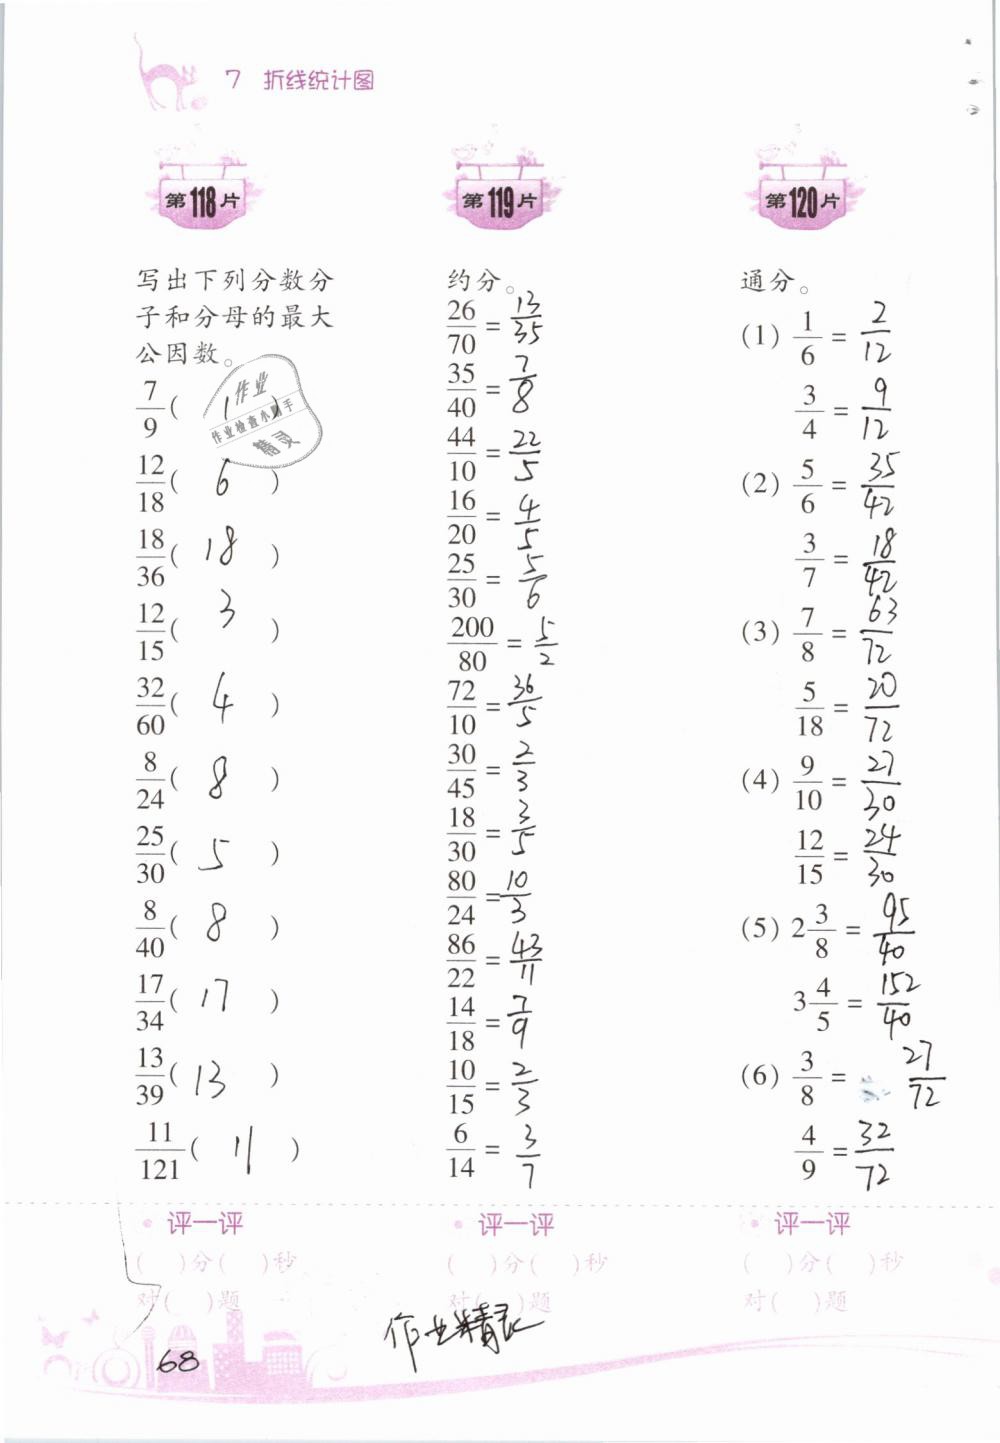 7 折线统计图
第118片
写出下列分数分
子和分母的最大
公因数。
7/9( 1 )
12/18( 6 )
18/36( 18 )
12/15( 3 )
32/60( 4 )
8/24( 8 )
25/30( 5 )
8/40( 8 )
17/34( 17 )
13/39( 13 )
11/121( 11 )
作业
作业检查小助手
精灵
评一评
( )分( )秒
对( )题
第119片
约分。
26/70 = 13/35
35/40 = 7/8
44/10 = 22/5
16/20 = 4/5
25/30 = 5/6
200/80 = 5/2
72/10 = 36/5
30/45 = 2/3
18/30 = 3/5
80/24 = 10/3
86/22 = 43/11
14/18 = 7/9
10/15 = 2/3
6/14 = 3/7
评一评
( )分( )秒
对( )题
第120片
通分。
(1) 1/6 = 2/12
3/4 = 9/12
(2) 5/6 = 35/42
3/7 = 18/42
(3) 7/8 = 63/72
5/18 = 20/72
(4) 9/10 = 27/30
12/15 = 24/30
(5) 2 3/8 = 95/40
3 4/5 = 152/40
(6) 3/8 = 27/72
4/9 = 32/72
评一评
( )分( )秒
对( )题
作业精灵
68